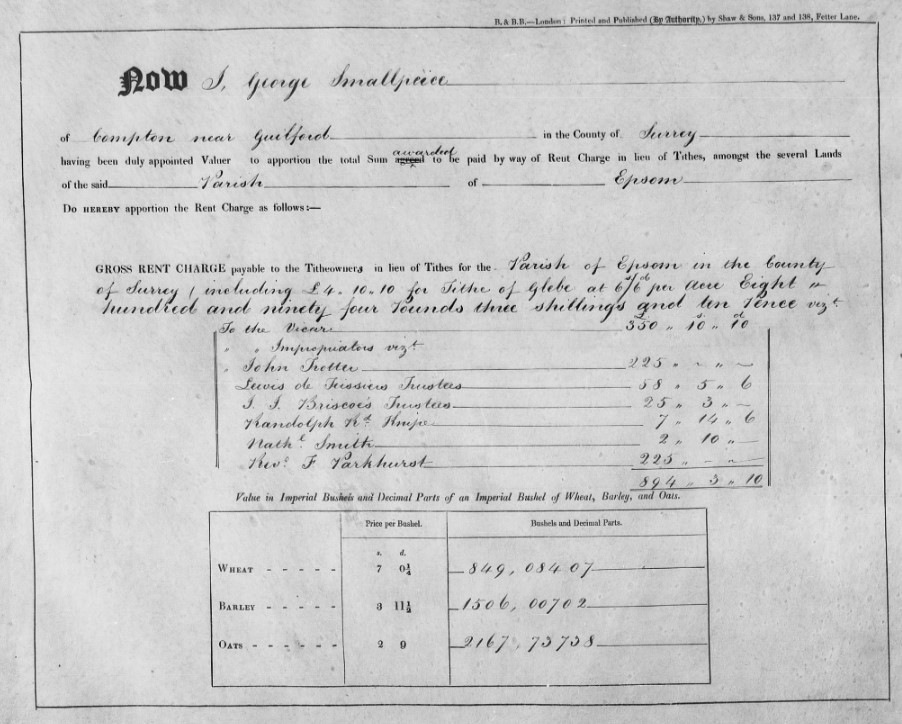 B. & B.B.—London: Printed and Published (By Authority,) by Shaw & Sons, 137 and 138, Fetter Lane.
Now I, George Smallpeice
of Compton near Guilford in the County of Surrey
awarded
having been duly appointed Valuer to apportion the total Sum agreed to be paid by way of Rent Charge in lieu of Tithes, amongst the several Lands
of the said Parish of Epsom
Do HEREBY apportion the Rent Charge as follows:—
GROSS RENT CHARGE payable to the Titheowners in lieu of Tithes for the Parish of Epsom in the County
of Surrey (including £4.10.10 for Tithe of Glebe at 6s/6d per Acre Eight
hundred and ninety four Pounds three shillings and ten Pence vizt
£ s. d
To the Vicar 350 " 10 " 10
" " Impropriators vizt
" John Trotter 225 " ~ " ~
Lewis de Teissiers Trustees 58 " 5 " 6
J. I. Briscoe's Trustees 25 " 3 " —
Randolph Rd Knipe 7 " 14 " 6
Nathl Smith 2 " 10 " —
Revd F Parkhurst 225 " — " —
894 " 3 " 10
Value in Imperial Bushels and Decimal Parts of an Imperial Bushel of Wheat, Barley, and Oats.
Price per Bushel. Bushels and Decimal Parts.
s. d.
WHEAT - - - - - 7 0¼ 849,08407
BARLEY - - - - - 3 11½ 1506,00702
OATS - - - - - - 2 9 2167,73738